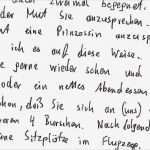 zweimal begegnet.
der Mut Sie anzusprechen.
t eine Prinzessin anzusprech
ich es auf diese Weise.
ie gerne wieder sehen und
oder ein nettes Abendessen
chen, daß Sie sich an (uns)
aren 4 Burschen. Nachfolgend
eine Sitzplätze im Flugzeug